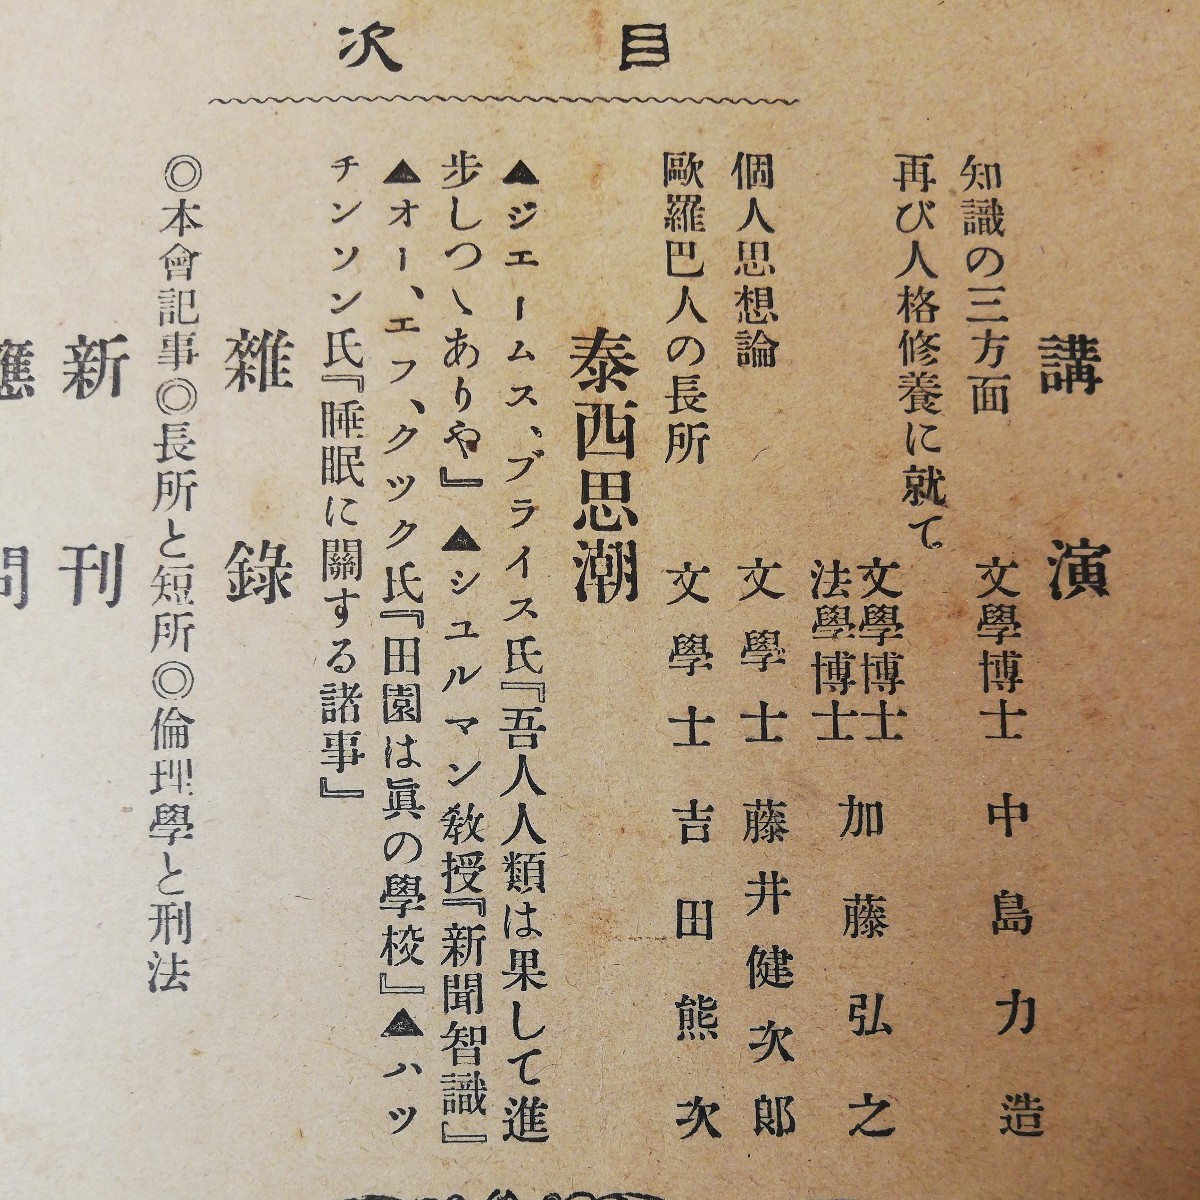 目次
講演
知識の三方面
文學博士 中島力造
再び人格修養に就て
文學博士
法學博士
加藤弘之
個人思想論
文學士 藤井健次郎
歐羅巴人の長所
文學士 吉田熊次
泰西思潮
▲ジェームス、ブライス氏『吾人人類は果して進
歩しつゝありや』▲シユルマン教授『新聞智識』
▲オー、エフ、クツク氏『田園は眞の學校』▲ハツ
チンソン氏『睡眠に關する諸事』
雜錄
◎本會記事◎長所と短所◎倫理學と刑法
新刊
應問